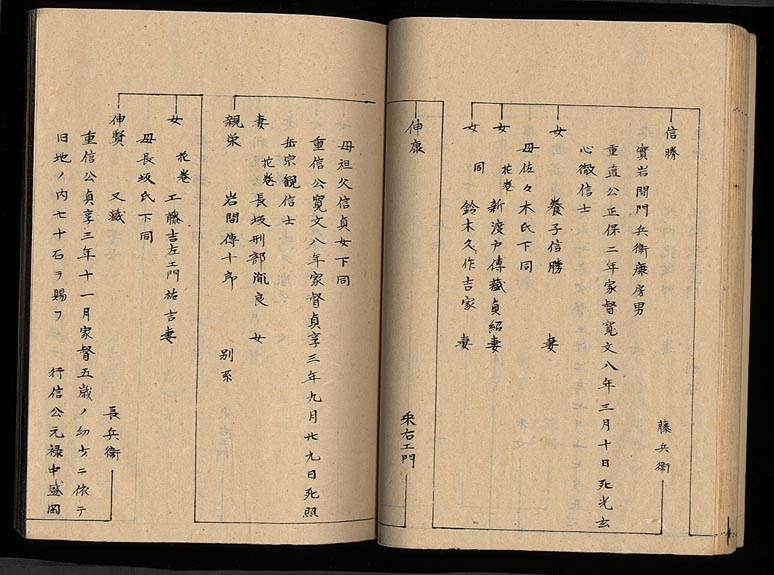 信勝 藤兵衛
實岩間門兵衛廉房男
重直公正保二年家督寛文八年三月十日死光玄
心徹信士
女 養子信勝 妻
母佐々木氏下同
女 花巻 新渡戸傳藏貞紹妻
女 同 鈴木久作吉家 妻
伸康 釆右エ門
母祖父信貞女下同
重信公寛文八年家督貞享三年九月廿九日死照
岳宗観信士
妻 花巻 長坂刑部胤良 女
親栄 岩間傳十郎 別系
女 花巻 工藤吉左エ門祐吉妻
母長坂氏下同
伸賢 又藏 長兵衛
重信公貞享三年十一月家督五歳ノ幼少ニ依テ
旧地ノ内七十石ヲ賜フ 行信公元禄中盛岡